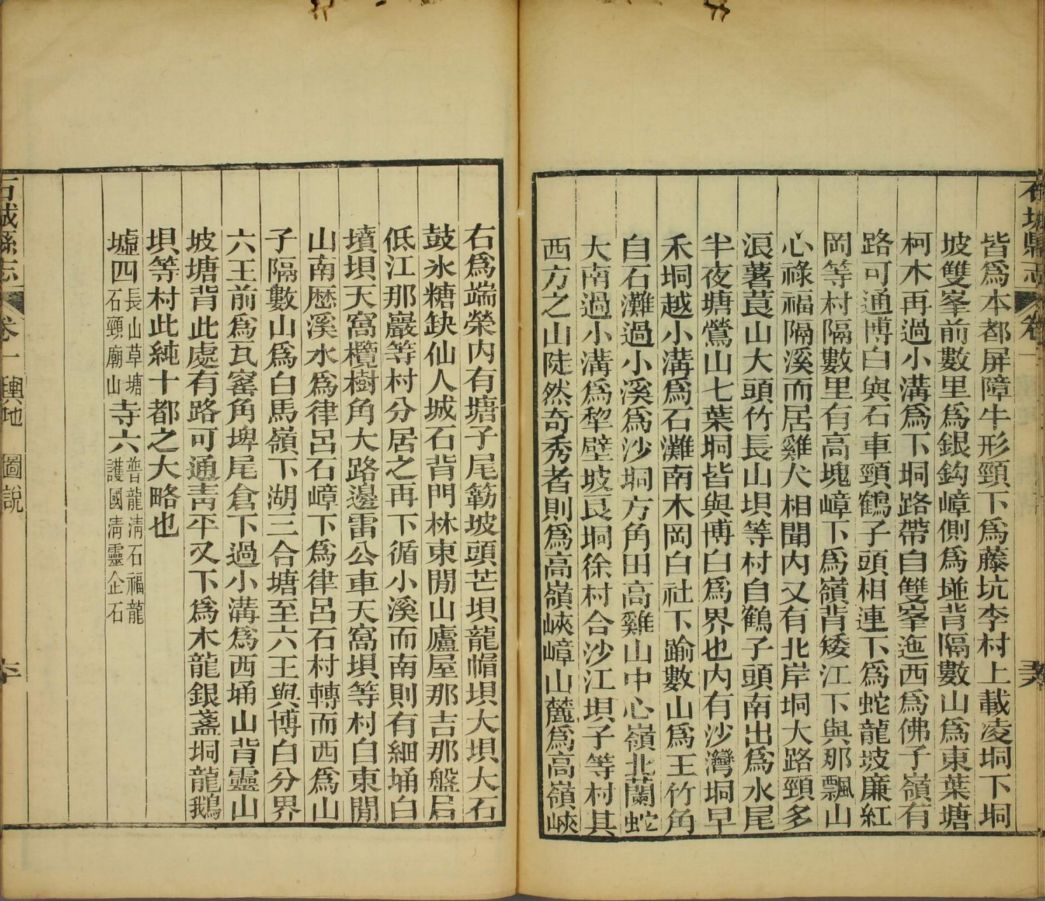 石城縣志 卷一
皆爲本都屏障牛形頸下爲藤坑李村上載凌垌下垌
坡雙峯前數里爲銀鈎嶂側爲㙋背隔數山爲東葉塘
柯木再過小溝爲下垌路帶自雙峯迤西爲佛子嶺有
路可通博白與石車頸鶴子頭相連下爲蛇龍坡廉紅
岡等村隔數里有高塊嶂下爲嶺背矮江下與那飄山
心祿福隔溪而居雞犬相聞內又有北岸垌大路頸多
浪薯莨山大頭竹長山垻等村自鶴子頭南出爲水尾
半夜塘鶯山七葉垌皆與博白爲界也內有沙灣垌早
禾垌越小溝爲石灘南木岡白社下踰數山爲王竹角
自石灘過小溪爲沙垌方角田高雞山中心嶺北蘭蛇
大南過小溝爲犂壁坡艮垌徐村合沙江垻子等村其
西方之山陡然奇秀者則爲高嶺峽嶂山麓爲高嶺峽
右爲端榮內有塘子尾簕坡頭芒垻龍帽垻大垻大石
鼓氷糖缺仙人城石背門林東閒山廬屋那吉那盤㞐
低江那巖等村分居之再下循小溪而南則有細埇白
墳垻天窩欖樹角大路邊雷公車天窩垻等村自東閒
山南厯溪水爲律呂石嶂下爲律呂石村轉而西爲山
子隔數山爲白馬嶺下湖三合塘至六王與博白分界
六王前爲瓦窰角埤尾倉下過小溝爲西埇山背靈山
坡塘背此處有路可通靑平又下爲木龍銀盞垌龍鵝
垻等村此純十都之大略也
墟四長山草塘石頸廟山寺六普龍淸石福龍護國淸靈企石
石城縣志 卷一 輿地 圖說